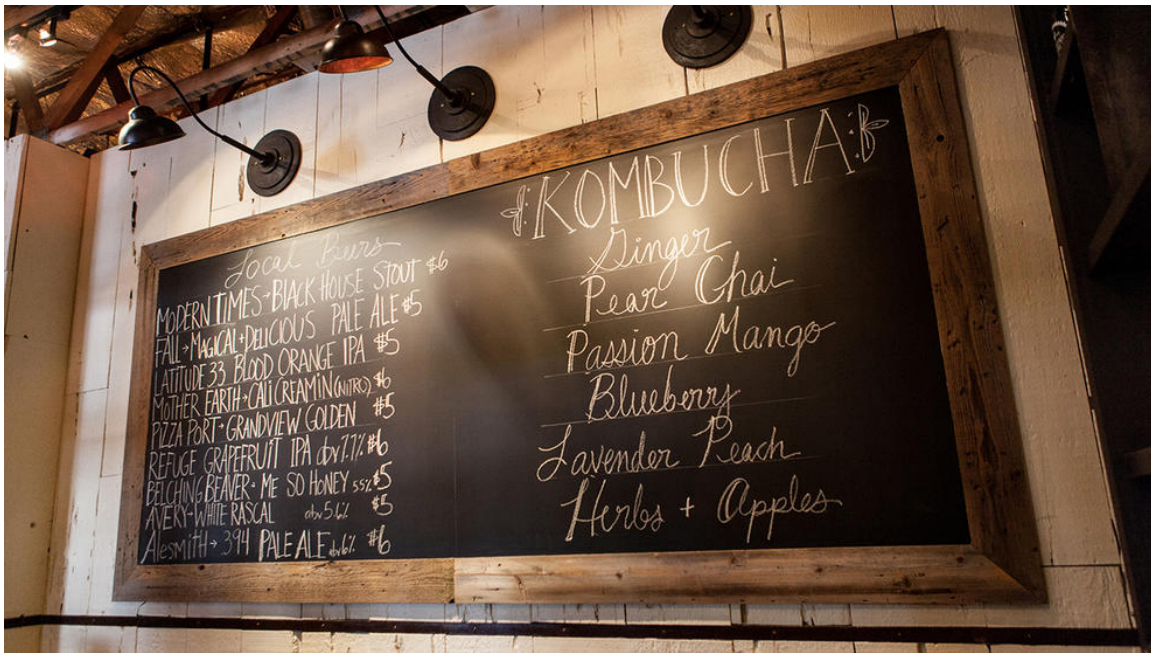 Local Beers
MODERN TIMES → BLACK HOUSE STOUT $6
FALL → MAGICAL + DELICIOUS PALE ALE $5
LATITUDE 33 BLOOD ORANGE IPA $5
MOTHER EARTH → CALI CREAMIN (NITRO) $6
PIZZA PORT → GRANDVIEW GOLDEN $5
REFUGE GRAPEFRUIT IPA abv 7.7% $6
BELCHING BEAVER → ME SO HONEY 5.5% $5
AVERY → WHITE RASCAL abv 5.6% $5
Alesmith → 394 PALE ALE abv 6% $6
KOMBUCHA
Ginger
Pear Chai
Passion Mango
Blueberry
Lavender Peach
Herbs + Apples